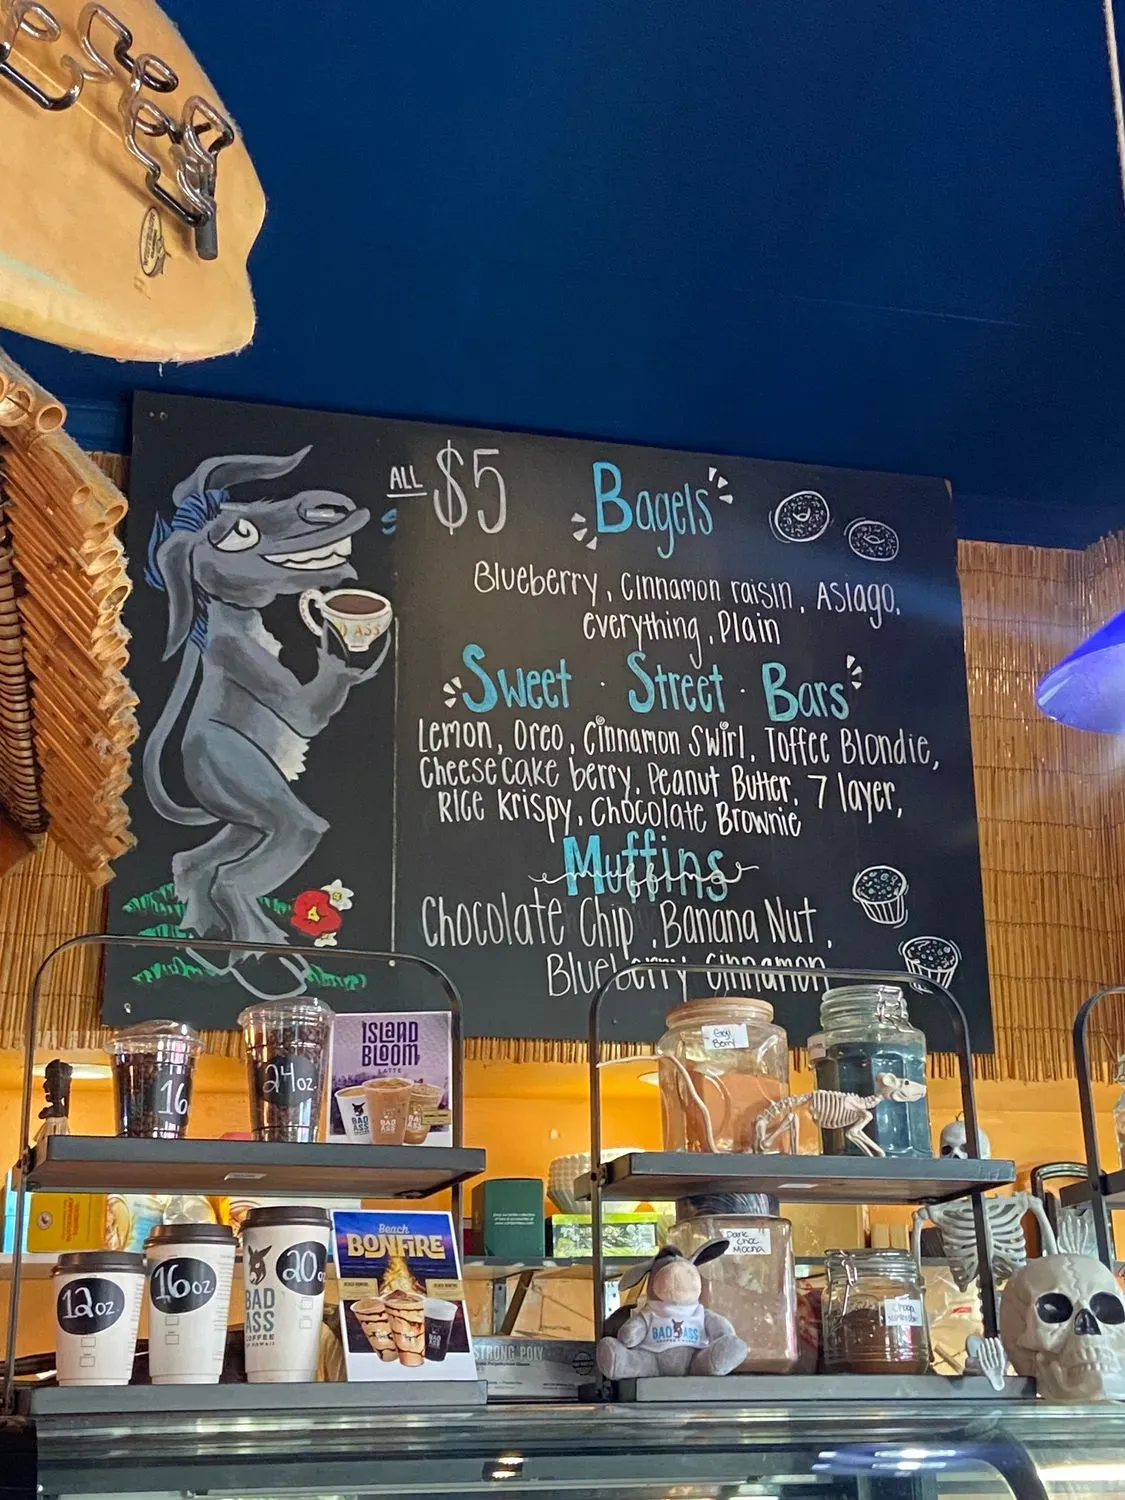 ALL $5
Bagels
Blueberry, cinnamon raisin, Asiago,
everything, Plain
Sweet · Street · Bars
Lemon, Oreo, Cinnamon Swirl, Toffee Blondie,
Cheesecake berry, Peanut Butter, 7 layer,
Rice Krispy, Chocolate Brownie
Muffins
muffins
Chocolate Chip, Banana Nut,
Blueberry Cinnamon
ASS
16
24oz.
ISLAND
BLOOM
LATTE
BAD
ASS
12oz.
16oz.
20o
BAD
ASS
COFFEE
OF HAWAII
Beach
BONFIRE
STRONG POLY
Goji
Berry
Dark
Choc
Mocha
BAD ASS